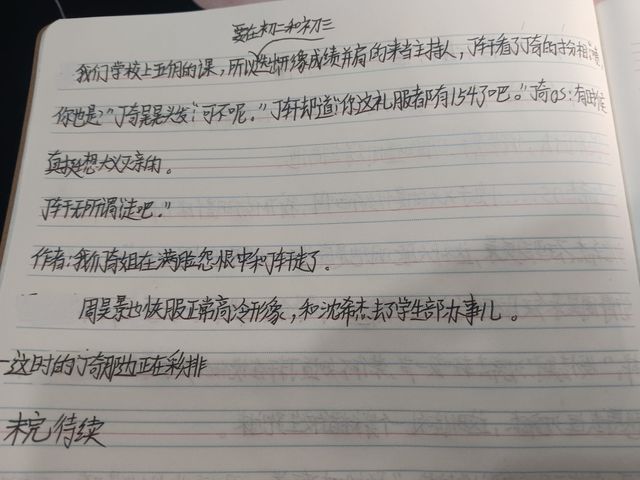 要在初二和初三
我们学校上五周的课,所以选颜缘成绩并肩的来当主持人,丁轩看了丁奇的才分相:"噢
你也是?"丁奇晃晃头发:"可不呢。"丁轩却道:"你这礼服都有154了吧。"丁奇OS:有时候
真挺想大义灭亲的。
丁轩:无所谓走吧。"
作者:我们奇姐在满脸怨恨中和丁轩走了。
周昊景也恢服正常高冷形象,和沈希杰去了学生部办事儿。
这时的丁奇那边正在彩排
未完待续